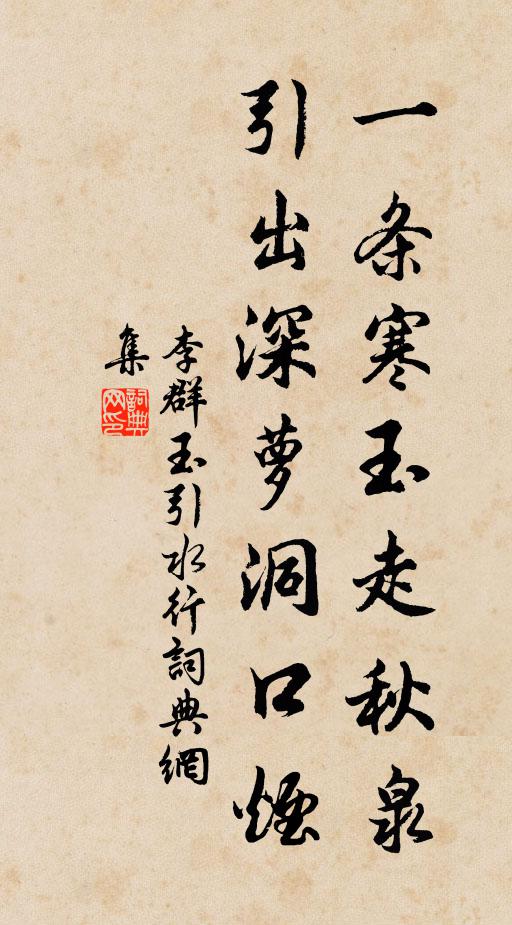 一条寒玉走秋泉
引出深萝洞口煙
李群玉引水行詞典網
集
詞典
网印